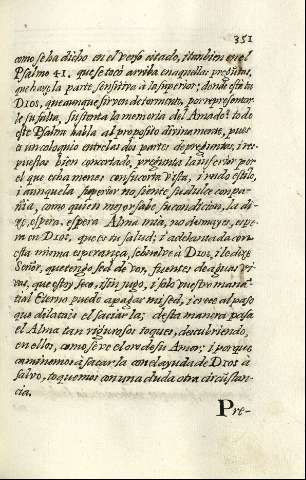 351
como se ha dicho en el verso citado, i tambien en el
Psalmo 41. que se tocò arriba en aquellas preguntas,
que haze la parte sensitiva à la superior; donde està tu
DIOS, que aunque sirven de tormento, por representar-
le su falta, sustenta la memoria del Amado: todo
este Psalmo habla al proposito divinamente, pues
es un coloquio entre las dos partes de preguntas, i res-
puestas bien concertado, pregunta la inferior por
el que echa menos con su corta vista, i rudo estilo,
i aunque la superior no siente su dulce compa-
ñia, como quien mejor sabe su condicion, la di-
ze, espera, espera Alma mia, no desmayes, espe-
ra en DIOS, que es tu salud; i adelantada con
esta misma esperança, se buelve à Dios, i le dize
Señor, que tengo sed de vos, fuentes de aguas vi-
vas, que estoy seco, i sin jugo, i solo vuestro mana-
tial Eterno puede apagar mi sed, i crece al paso
que dilatais el saciarla; desta manera pasa
el Alma tan rigurosos toques, descubriendo,
en ellos, como se ve el oro de su Amor; i porque
caminemos à sacarla con el ayuda de DIOS à
salvo, toquemos con una duda otra circũstan-
cia.
Pre-